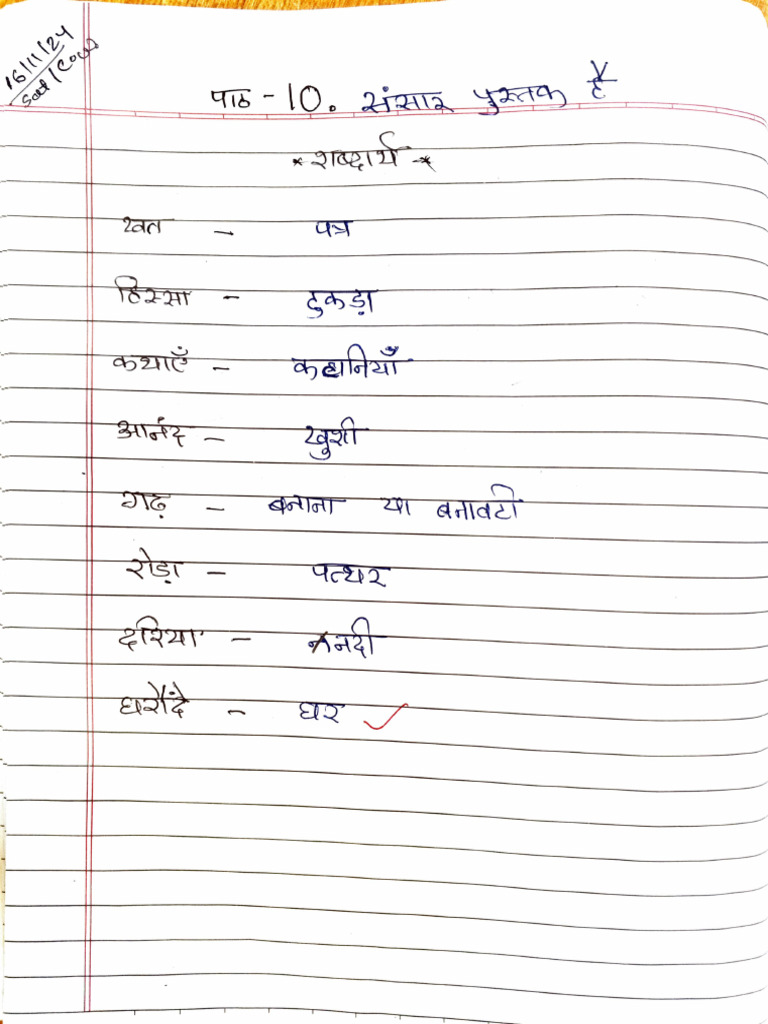 16/11/24
पाठ - 10. संसार पुस्तक है
* शब्दार्थ *
खत - पत्र
हिस्सा - टुकड़ा
कथाएँ - कहानियाँ
आनंद - खुशी
गढ़ - बनाना या बनावटी
रोड़ा - पत्थर
दरिया - नदी
घरौंदे - घर